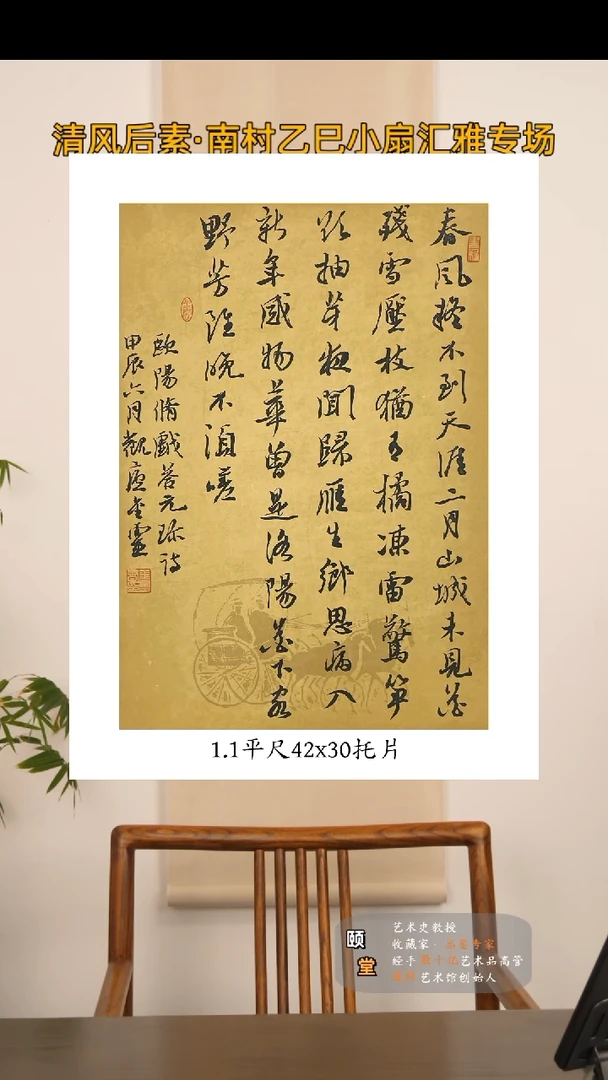 清风后素·南村乙巳小扇汇雅专场
春風疑不到天涯二月山城未見花
殘雪壓枝猶有橘凍雷驚筍
欲抽芽夜聞歸雁生鄉思病入
新年感物華曾是洛陽花下客
野芳雖晚不須嗟
歐陽脩戲答元珍詩
甲辰六月
1.1平尺42x30托片
颐堂
艺术史教授
收藏家·品鉴专家
经手数十亿艺术品高管
艺术馆创始人